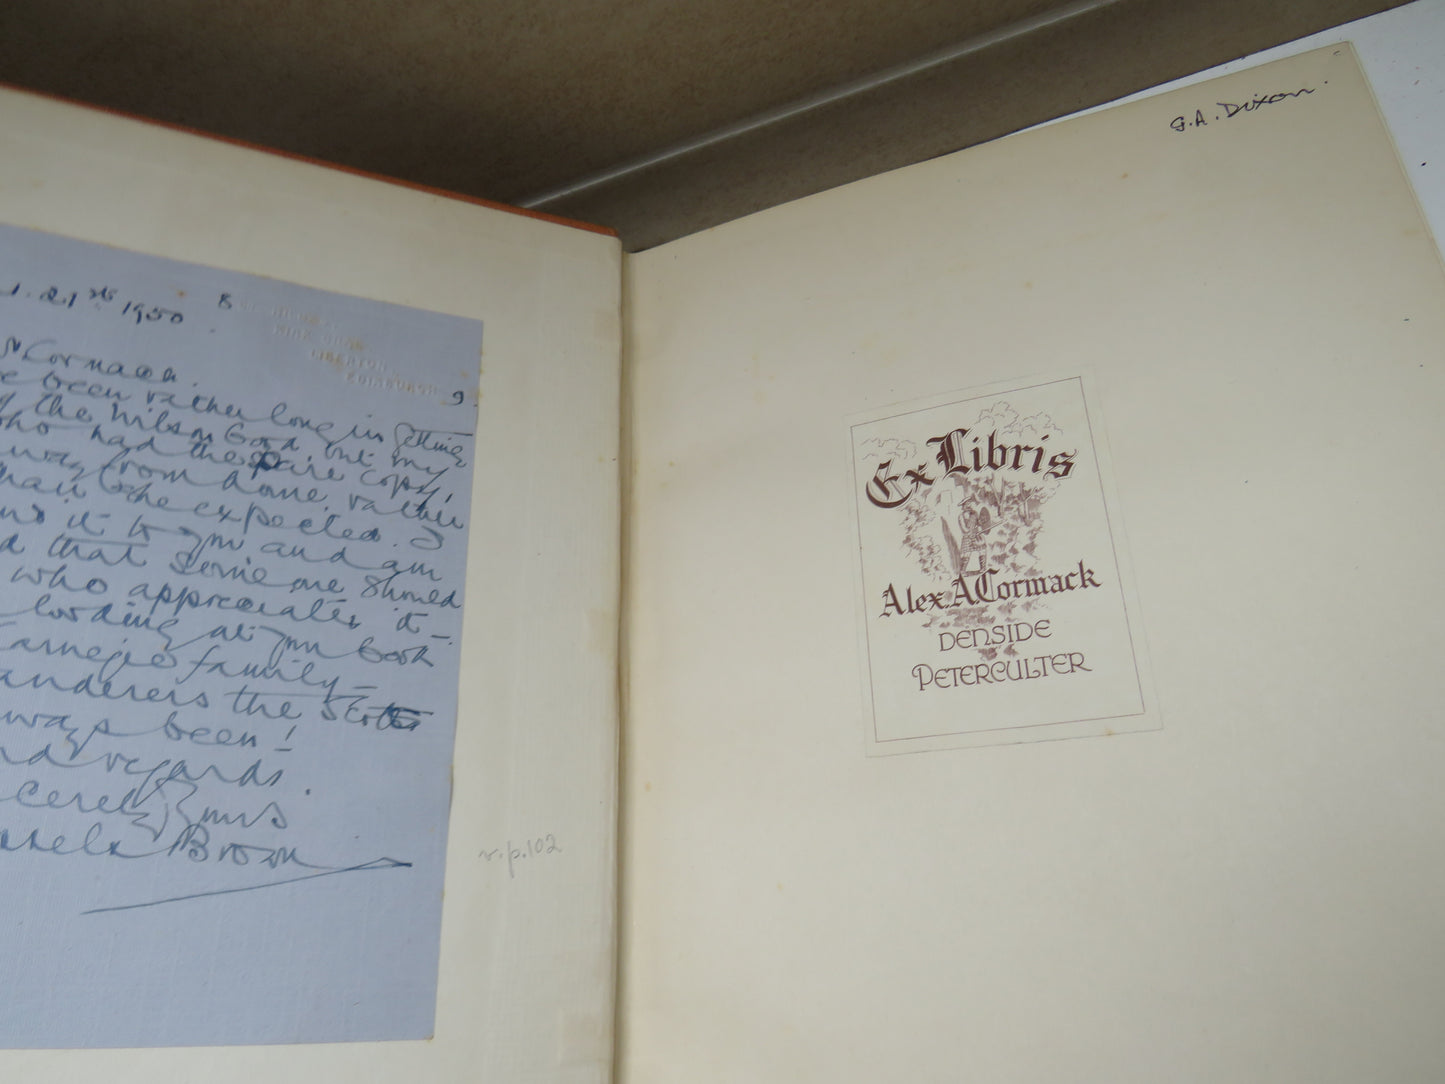 21st 1950
Cormack.
been rather long in getting
the Wilson book but my
who had the spare copy,
was from home rather
than she expected. I
it to you and am
that someone should
who appreciates it –
looking at your book
Carnegie family –
anderers the Scots
ways been!
nd regards.
cerely yours
Brown
LIBERTON
EDINBURGH 9.
v.p.102
G.A. Dixon.
Ex Libris
Alex. A. Cormack
DENSIDE
PETERCULTER